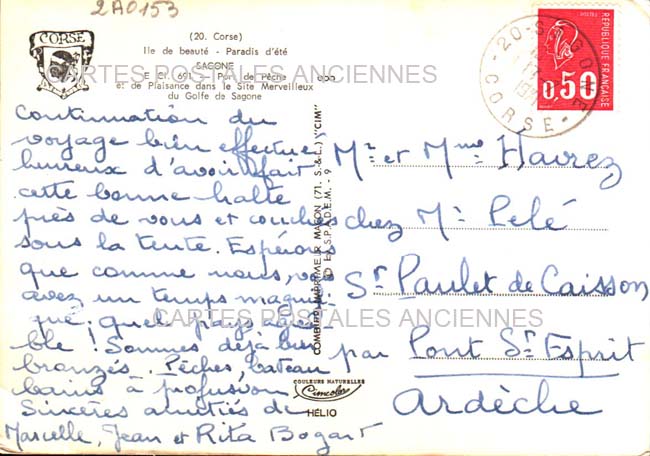 2A0153
CORSE
(20. Corse)
Ile de beauté - Paradis d'été
SAGONE
E CI. 691 - Port de Pêche
et de Plaisance dans le Site Merveilleux
du Golfe de Sagone
CARTES POSTALES ANCIENNES
Continuation du
voyage bien effectué
heureux d'avoir fait
cette bonne halte
près de vous et couchés
sous la tente. Espérons
que comme nous, vous
avez un temps magnifi-
que, quel pays agréa-
ble ! Sommes déjà bien
bronzés. Pêches, bateau
bains à profusion.
Sincères amitiés de
Marcelle, Jean et Rita Bogart
COMBIER IMPRIMEUR MACON (71. S.-&-L.) "CIM"
© E. S.P.A.D.E.M. - 9
COULEURS NATURELLES
Cimcolor
HÉLIO
20 - SAGONE
CORSE
REPUBLIQUE FRANÇAISE
0,50
Mr et Mme Havrez
chez Mr Pelé
St Paulet de Caisson
par Pont St Esprit
Ardèche
CARTES POSTALES ANCIENNES